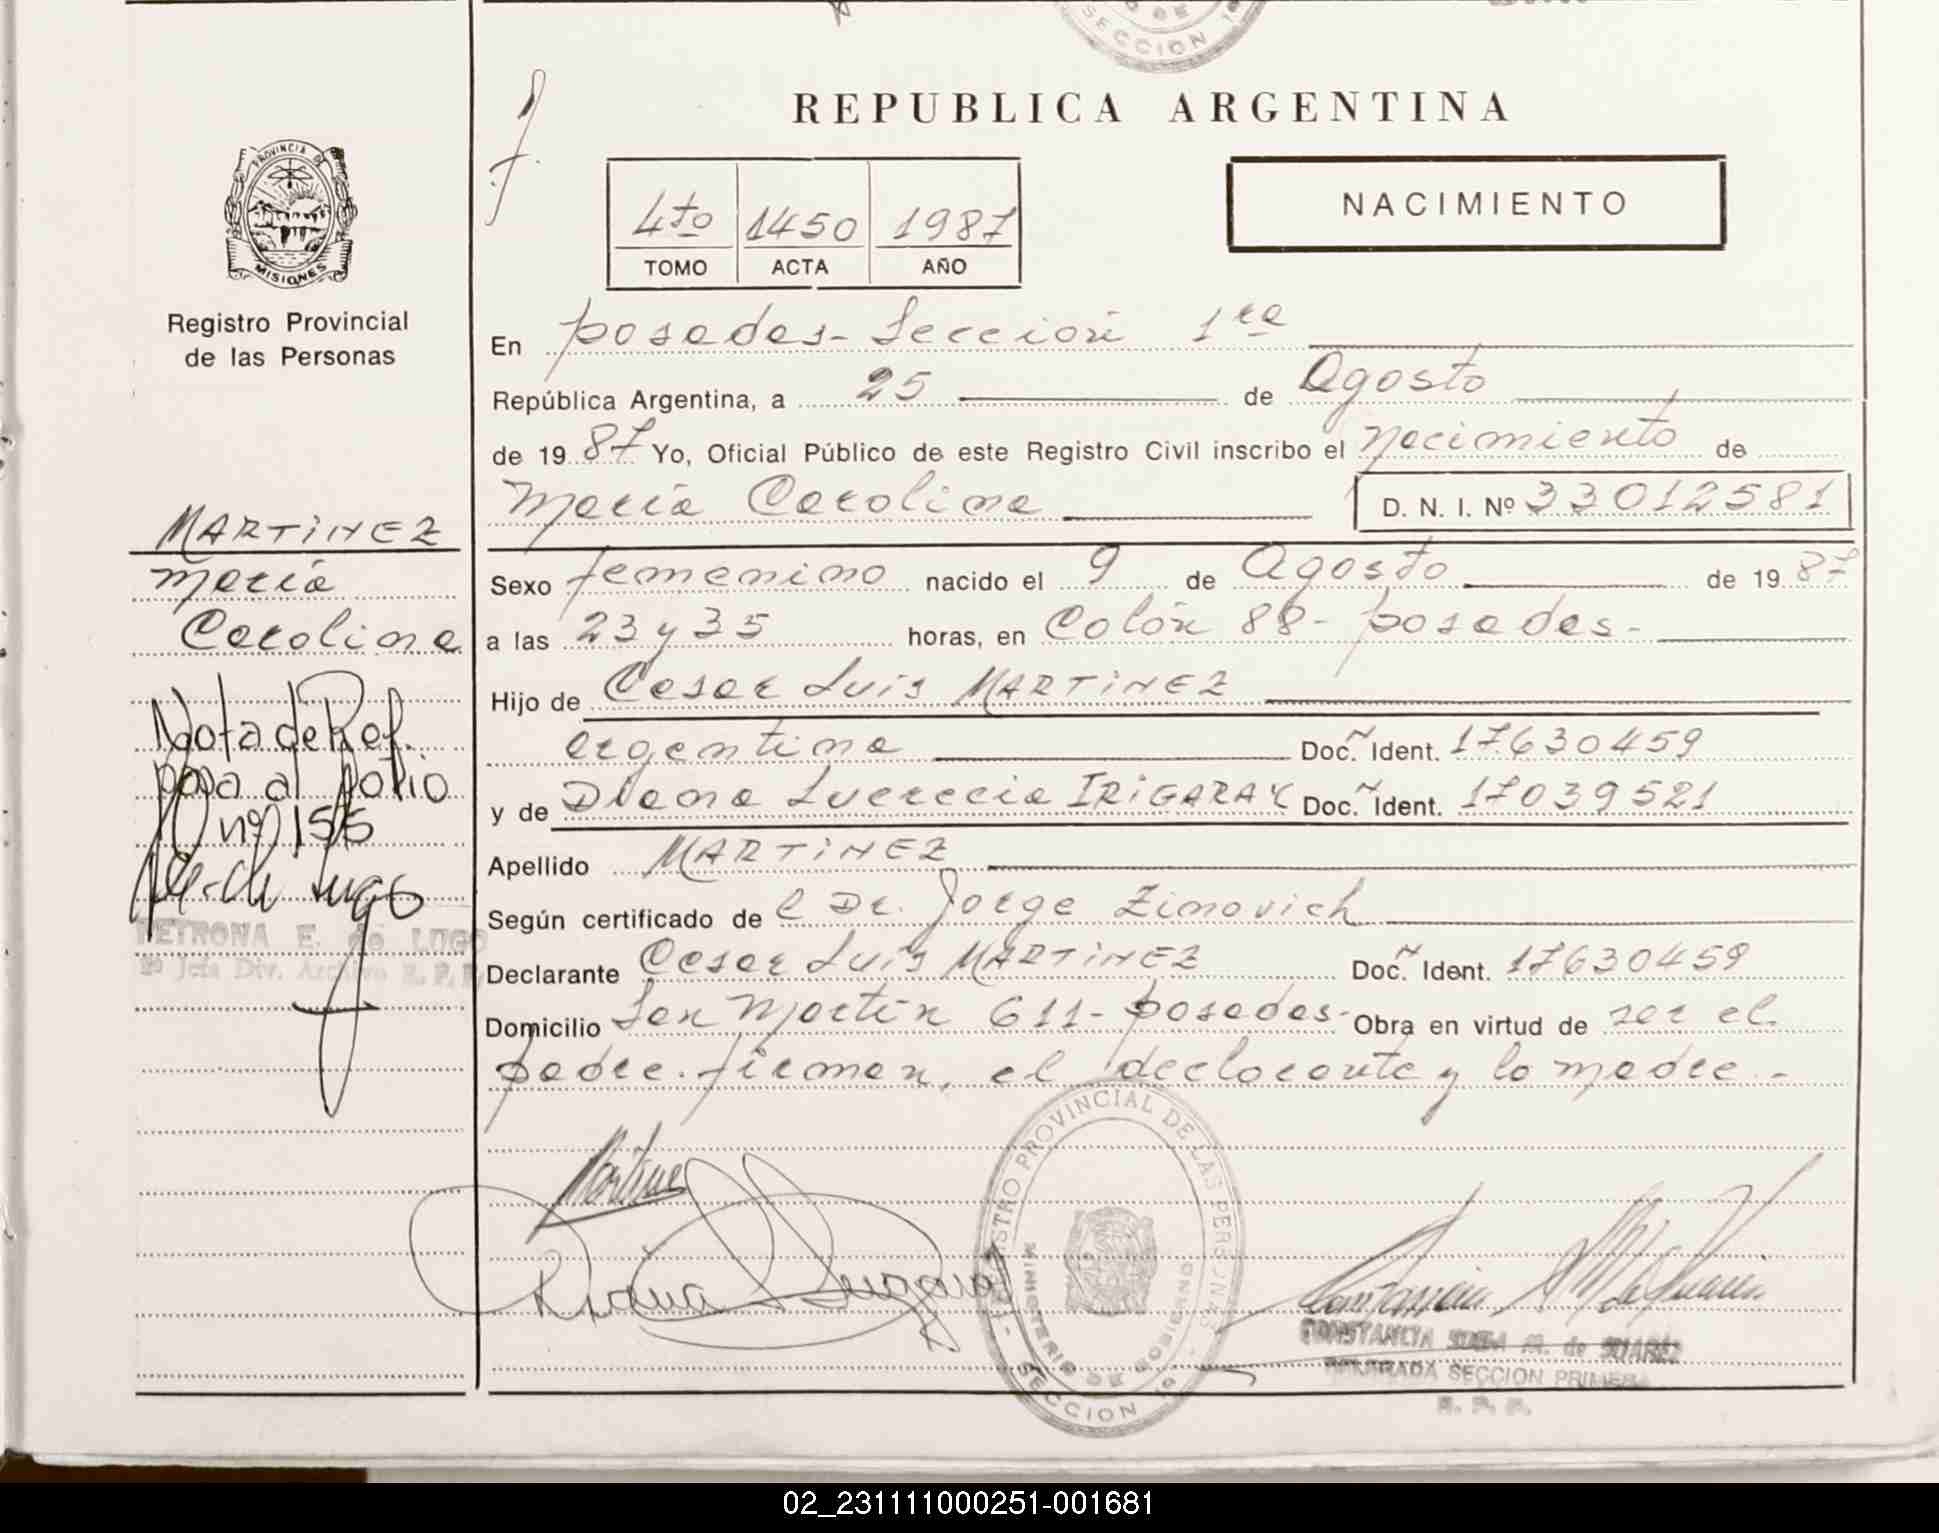 SECCION 1ª
REPUBLICA ARGENTINA
PROVINCIA DE
MISIONES
Registro Provincial
de las Personas
4to 1450 1987
TOMO ACTA AÑO
NACIMIENTO
En Posadas - Sección 1ra
República Argentina, a 25 de Agosto
de 1987 Yo, Oficial Público de este Registro Civil inscribo el nacimiento de
María Carolina D. N. I. Nº 33012581
MARTINEZ
María
Carolina
Sexo femenino nacido el 9 de Agosto de 1987
a las 23 y 35 horas, en Colón 88 - Posadas -
Hijo de Cesar Luis MARTINEZ
argentina Doc. Ident. 17630459
y de Diana Lucrecia IRIGARAY Doc. Ident. 17039521
Apellido MARTINEZ
Según certificado de el Dr. Jorge Zinovich
Declarante Cesar Luis MARTINEZ Doc. Ident. 17630459
Domicilio San Martín 611 - Posadas - Obra en virtud de ser el
padre. firman, el declarante y la madre. -
Nota de Ref.
pasa al folio
nº 155
PETRONA E. de LUGO
Jefa Div. Archivo R. P. P.
REGISTRO PROVINCIAL DE LAS PERSONAS
MINISTERIO DE GOBIERNO
SECCION 1ª
CONSTANCIA M. de SUAREZ
SECCION PRIMERA
R. P. P.
02_231111000251-001681